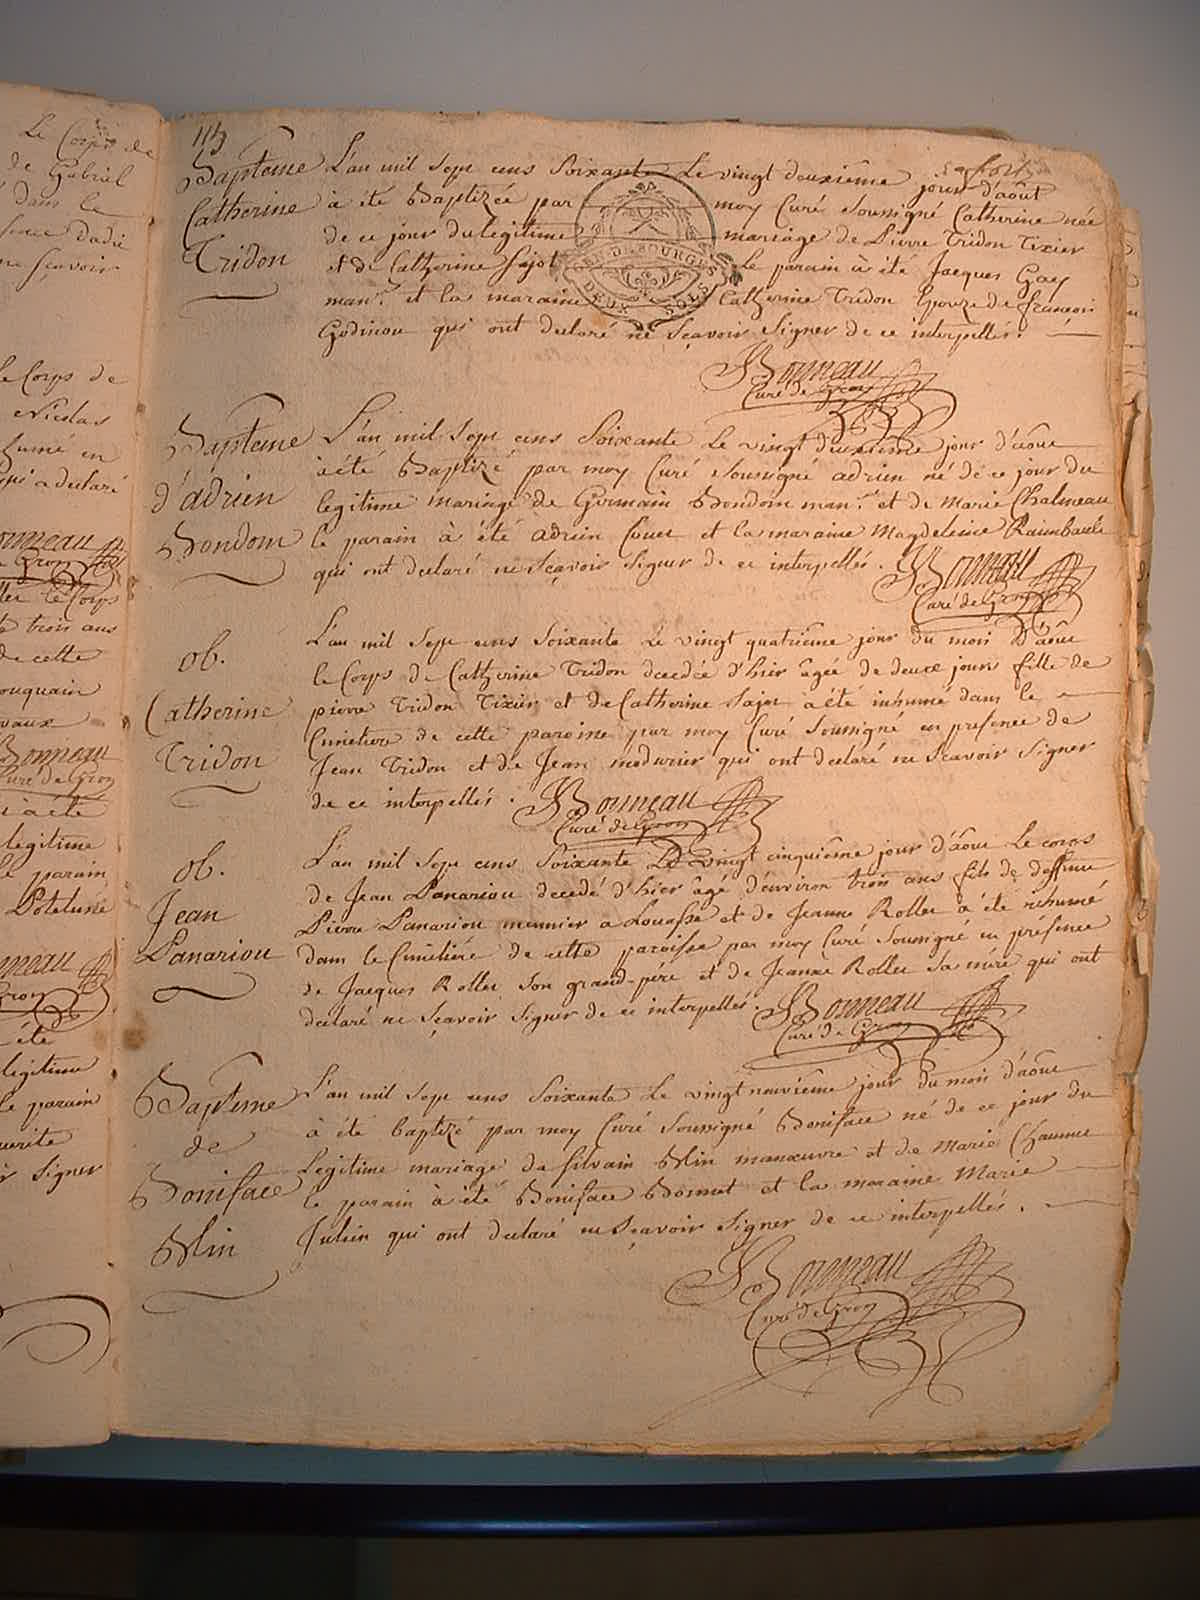 Le Corps de
de Gabriel
dans le
ne sçavoir
le Corps de
Nicolas
humé en
qui a declaré
Bonneau
le Corps
trois ans
de cette
ouquain
vaux
Bonneau
Curé de Gron
à été
legitime
parain
Bonneau
Gron
été
legitime
le parain
signer
115
Bapteme
Catherine
Tridon
L'an mil sept cens soixante Le vingt deuxieme jour d'aôut
à été Baptizée par moy Curé soussigné Catherine née
de ce jour du legitime mariage de Pierre Tridon Tixier
et de Catherine Sajot Le parain à été Jacques Gay
man.re et la maraine Catherine Tridon Epouze de françois
Godinou qui ont declaré ne sçavoir signer de ce interpellés.
GEN. DE BOURGES
DEUX SOLS
Bonneau
Curé de Gron
Bapteme
d'adrien
Bondom
L'an mil sept cens soixante Le vingt deuxième jour d'aôut
à été Baptizé par moy Curé soussigné adrien né de ce jour du
legitime mariage de Germain Bondom man.re et de Marie Chalmeau
le parain à été adrien Couet et la maraine Magdeleine Raimbault
qui ont declaré ne sçavoir signer de ce interpellés.
Bonneau
Curé de Gron
ob.
Catherine
Tridon
L'an mil sept cens soixante Le vingt quatrième jour du mois d'aôut
le Corps de Catherine Tridon decedée d'hier âgée de deux jours fille de
pierre Tridon Tixier et de Catherine Sajot à été inhumé dans le
Cimetiere de cette paroisse par moy Curé soussigné en presence de
Jean Tridon et de Jean qui ont declaré ne sçavoir signer
de ce interpellés.
Bonneau
Curé de Gron
ob.
Jean
Panariou
L'an mil sept cens soixante Le vingt cinquième jour d'aôut Le corps
de Jean Panariou decedé d'hier âgé d'environ trois ans fils de deffunt
Pierre Panariou meunier a Louasse et de Jeanne Rollet à été inhumé
dans le Cimétiére de cette paroisse par moy Curé soussigné en présence
de Jacques Rollet son grand-pére et de Jeanne Rollet sa mére qui ont
declaré ne sçavoir signer de ce interpellés.
Bonneau
Curé de Gron
Bapteme
de
Boniface
Blin
L'an mil sept cens soixante Le vingt neuvième jour du mois d'aôut
à été baptizé par moy Curé soussigné Boniface né de ce jour du
Legitime mariage de silvain Blin manœuvre et de Marie Chaume
le parain à été Boniface Bonnet et la maraine Marie
Julien qui ont declaré ne sçavoir signer de ce interpellés.
Bonneau
Curé de Gron